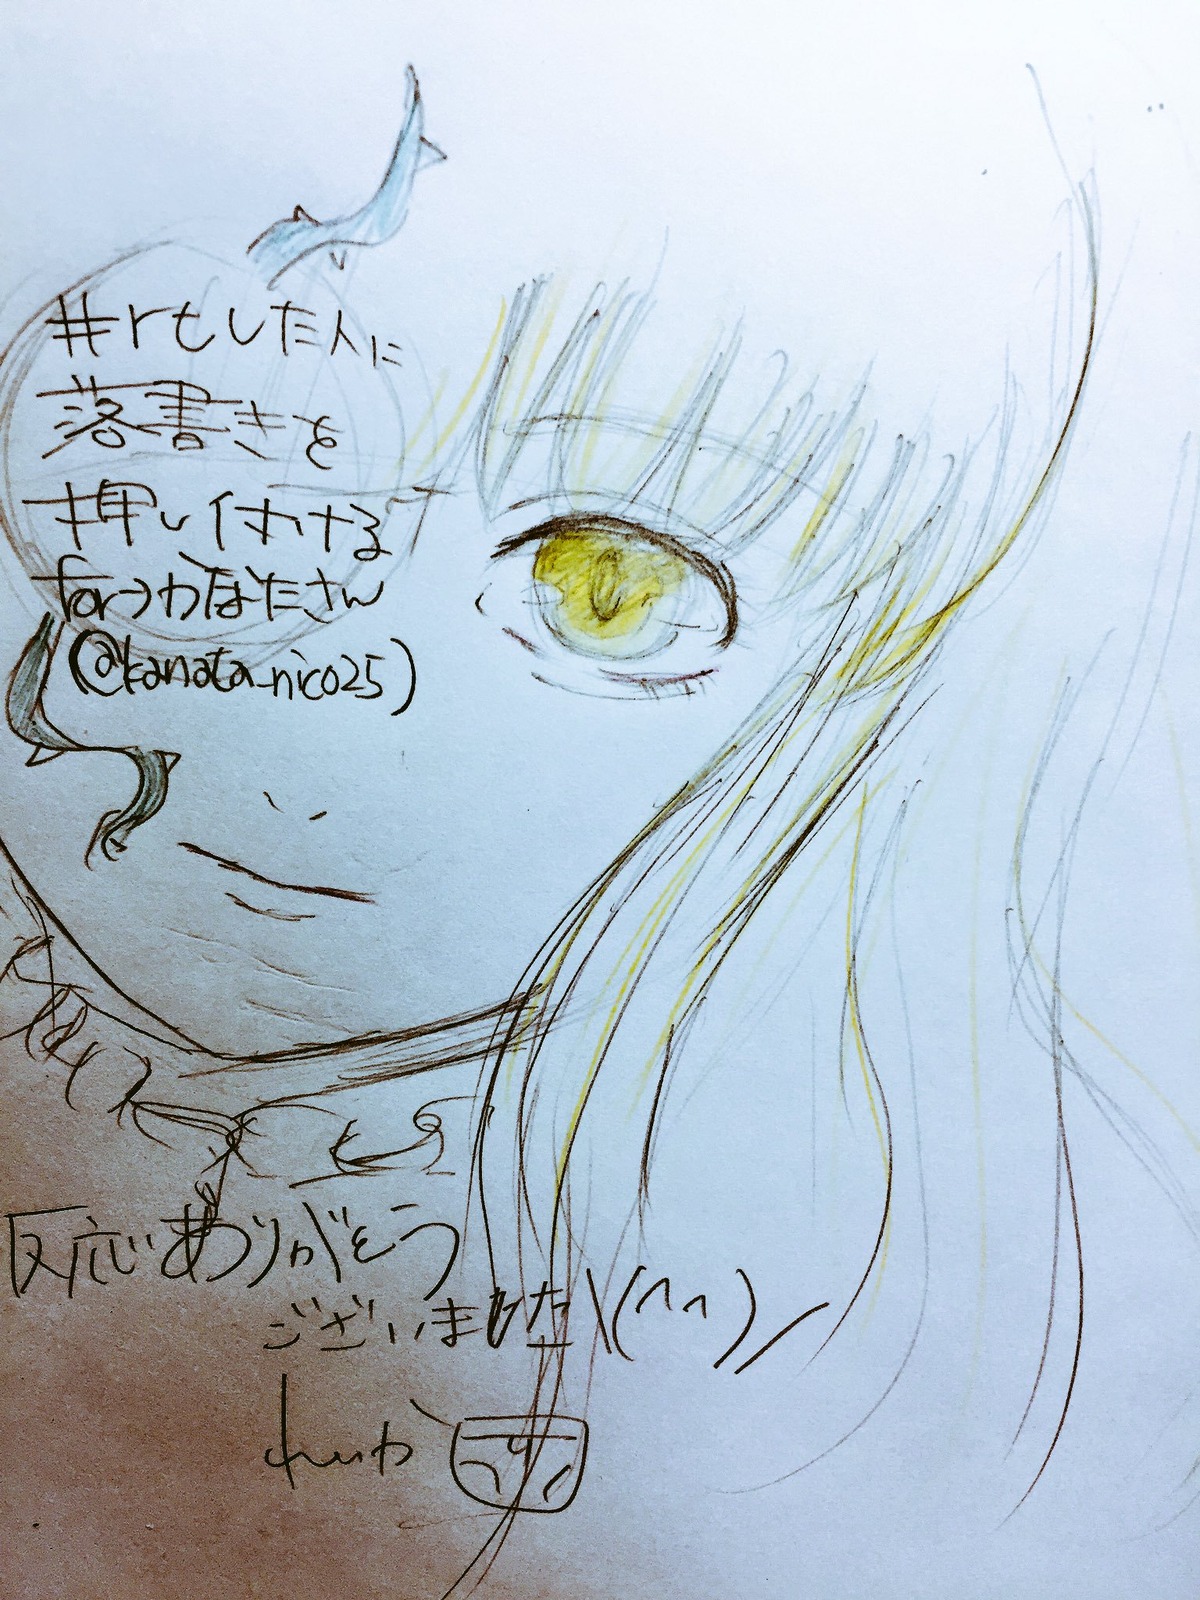 #rtした人に
落書きを
押し付ける
forつかぽたさん
(@kanata_nico25)
反応ありがとう
ございました\(^^)/
れいか